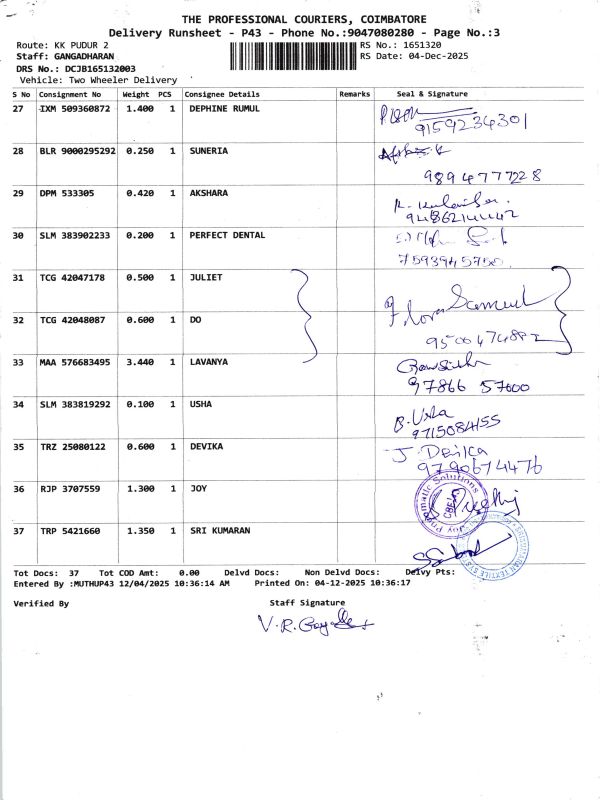 THE PROFESSIONAL COURIERS, COIMBATORE
Delivery Runsheet - P43 - Phone No.:9047080280 - Page No.:3
Route: KK PUDUR 2 RS No.: 1651320
Staff: GANGADHARAN RS Date: 04-Dec-2025
DRS No.: DCJB165132003
Vehicle: Two Wheeler Delivery
S No Consignment No Weight PCS Consignee Details Remarks Seal & Signature
27 IXM 509360872 1.400 1 DEPHINE RUMUL
9159234301
28 BLR 9000295292 0.250 1 SUNERIA
9894777228
29 DPM 533305 0.420 1 AKSHARA
30 SLM 383902233 0.200 1 PERFECT DENTAL
7593945750
31 TCG 42047178 0.500 1 JULIET
Flora Samuel
32 TCG 42048087 0.600 1 DO
33 MAA 576683495 3.440 1 LAVANYA
97866 57600
34 SLM 383819292 0.100 1 USHA
B. Usha
9715084155
35 TRZ 25080122 0.600 1 DEVIKA
J. Devika
9790674476
36 RJP 3707559 1.300 1 JOY
37 TRP 5421660 1.350 1 SRI KUMARAN
Tot Docs: 37 Tot COD Amt: 0.00 Delvd Docs: Non Delvd Docs: Delvy Pts:
Entered By :MUTHUP43 12/04/2025 10:36:14 AM Printed On: 04-12-2025 10:36:17
Verified By Staff Signature